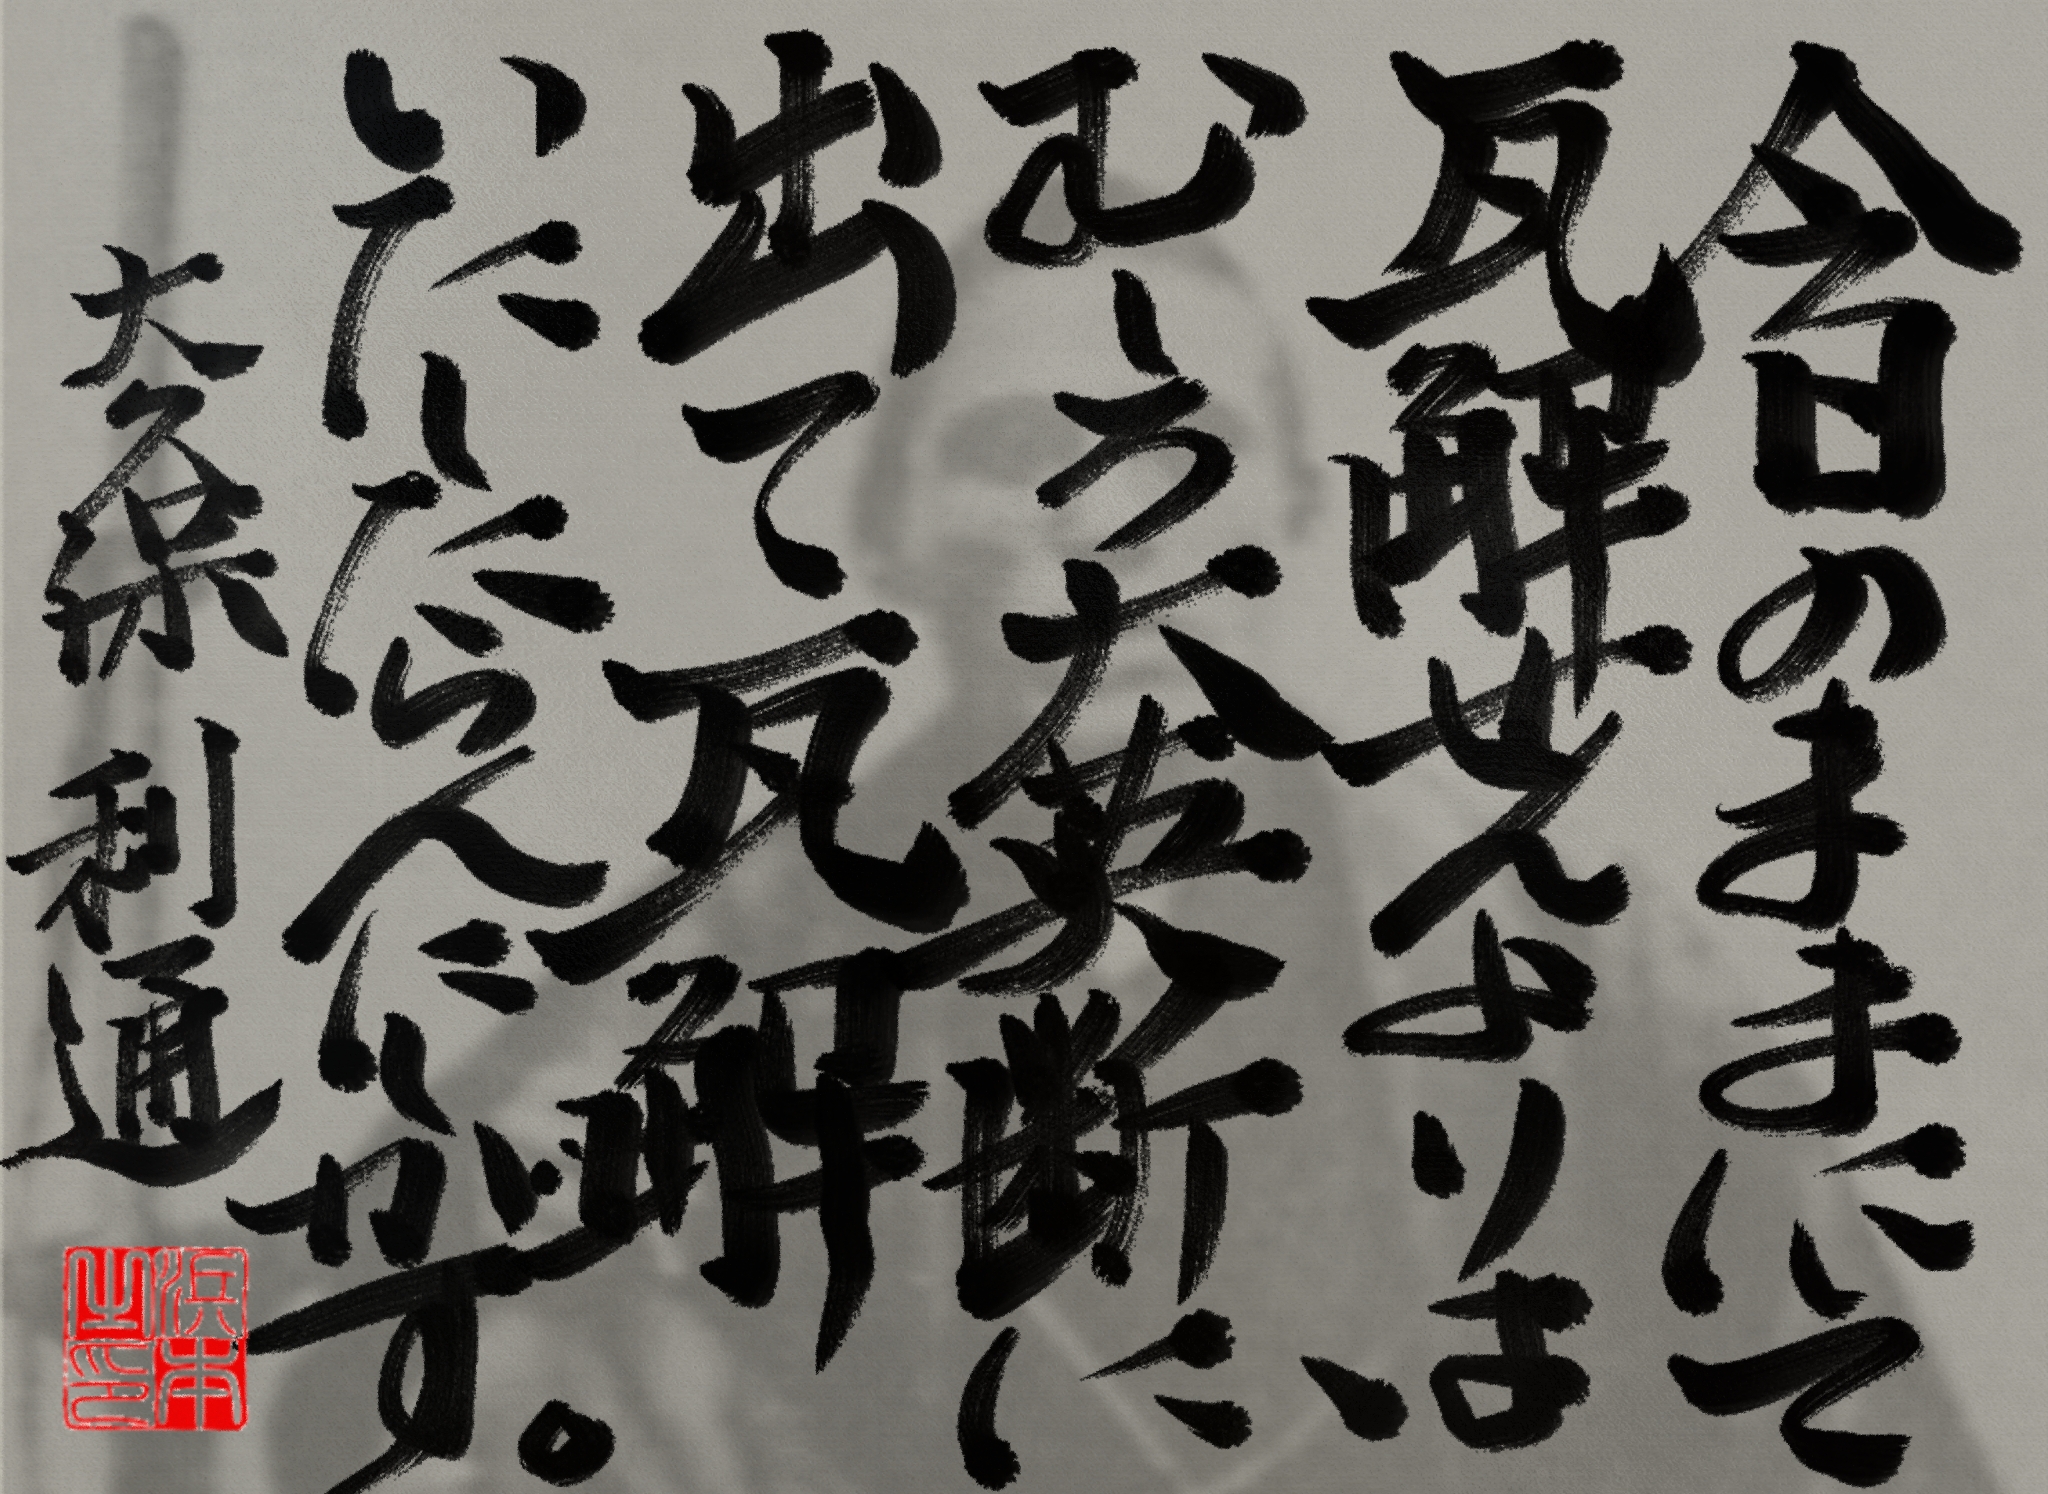 今日のままにて
瓦解せんよりは、
むしろ大英断に
出て瓦解
いたしたらんにしかず。
大久保 利通
浜本
之印